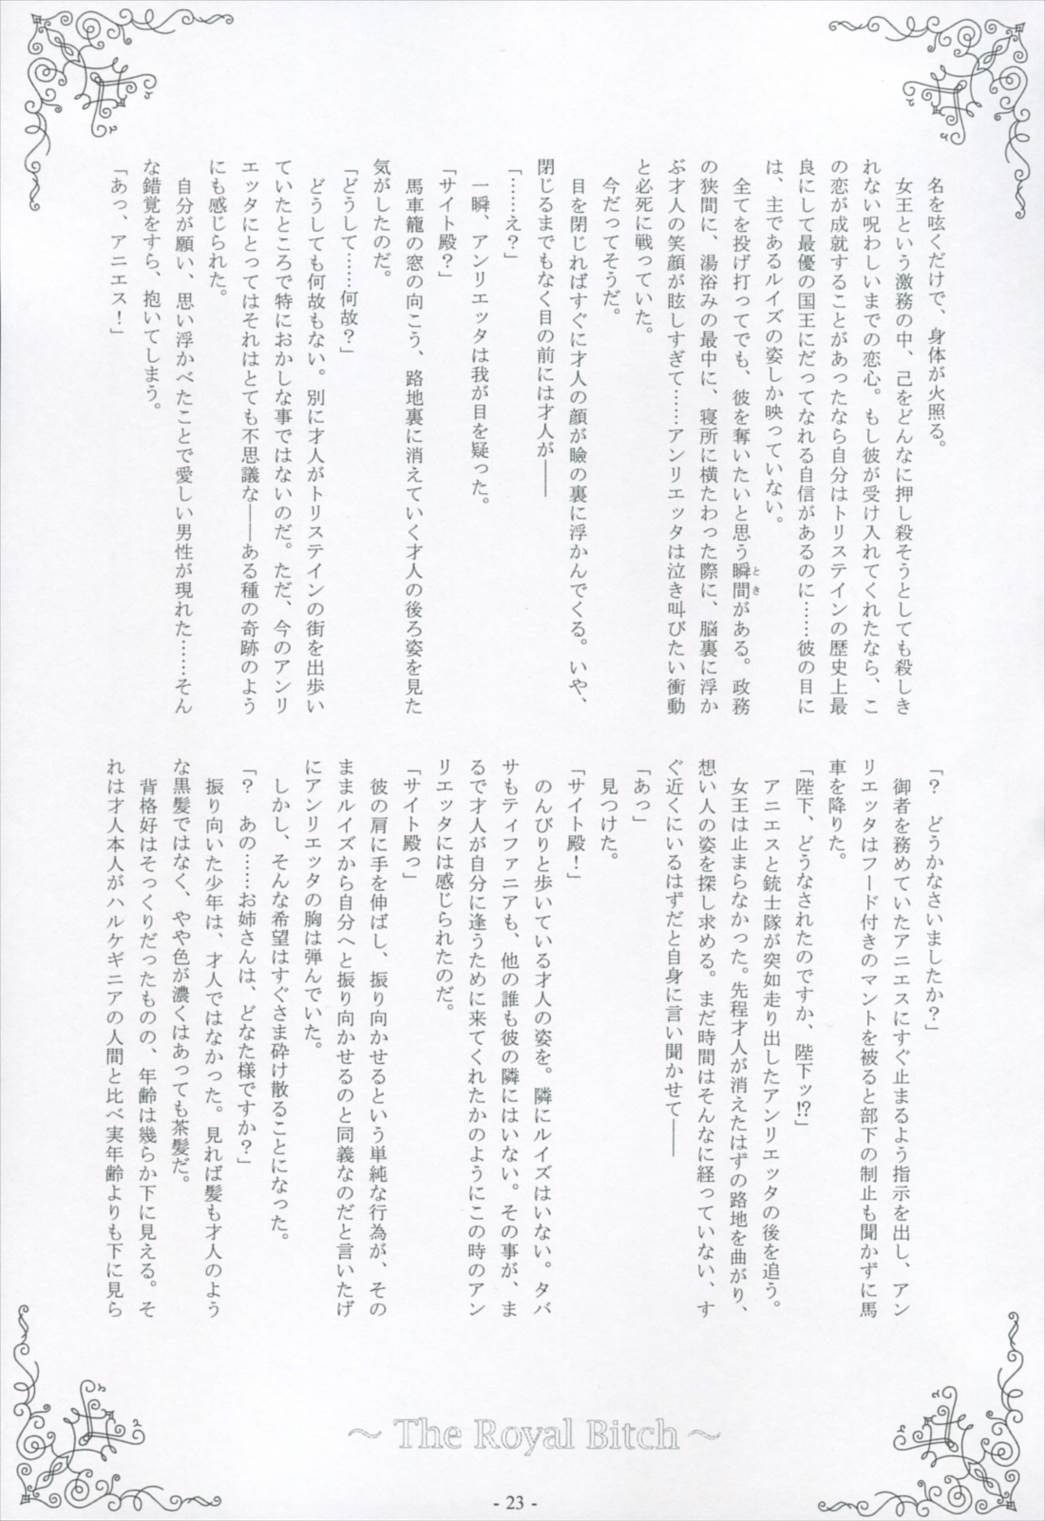 名を呟くだけで、身体が火照る。
女王という激務の中、己をどんなに押し殺そうとしても殺しき
れない呪わしいまでの恋心。もし彼が受け入れてくれたなら、こ
の恋が成就することがあったなら自分はトリステインの歴史上最
良にして最優の国王にだってなれる自信があるのに……彼の目に
は、主であるルイズの姿しか映っていない。
全てを投げ打ってでも、彼を奪いたいと思う瞬間がある。政務
の狭間に、湯浴みの最中に、寝所に横たわった際に、脳裏に浮か
ぶ才人の笑顔が眩しすぎて……アンリエッタは泣き叫びたい衝動
と必死に戦っていた。
今だってそうだ。
目を閉じればすぐに才人の顔が瞼の裏に浮かんでくる。いや、
閉じるまでもなく目の前には才人が――
「……え？」
一瞬、アンリエッタは我が目を疑った。
「サイト殿？」
馬車籠の窓の向こう、路地裏に消えていく才人の後ろ姿を見た
気がしたのだ。
「どうして……何故？」
どうしても何故もない。別に才人がトリステインの街を出歩い
ていたところで特におかしな事ではないのだ。ただ、今のアンリ
エッタにとってはそれはとても不思議な――ある種の奇跡のよう
にも感じられた。
自分が願い、思い浮かべたことで愛しい男性が現れた……そん
な錯覚をすら、抱いてしまう。
「あっ、アニエス！」
「？　どうかなさいましたか？」
御者を務めていたアニエスにすぐ止まるよう指示を出し、アン
リエッタはフード付きのマントを被ると部下の制止も聞かずに馬
車を降りた。
「陛下、どうなされたのですか、陛下ッ!?」
アニエスと銃士隊が突如走り出したアンリエッタの後を追う。
女王は止まらなかった。先程才人が消えたはずの路地を曲がり、
想い人の姿を探し求める。まだ時間はそんなに経っていない、す
ぐ近くにいるはずだと自身に言い聞かせて――
「あっ」
見つけた。
「サイト殿！」
のんびりと歩いている才人の姿を。隣にルイズはいない。タバ
サもティファニアも、他の誰も彼の隣にはいない。その事が、ま
るで才人が自分に逢うために来てくれたかのようにこの時のアン
リエッタには感じられたのだ。
「サイト殿っ」
彼の肩に手を伸ばし、振り向かせるという単純な行為が、その
ままルイズから自分へと振り向かせるのと同義なのだと言いたげ
にアンリエッタの胸は弾んでいた。
しかし、そんな希望はすぐさま砕け散ることになった。
「？　あの……お姉さんは、どなた様ですか？」
振り向いた少年は、才人ではなかった。見れば髪も才人のよう
な黒髪ではなく、やや色が濃くはあっても茶髪だ。
背格好はそっくりだったものの、年齢は幾らか下に見える。そ
れは才人本人がハルケギニアの人間と比べ実年齢よりも下に見ら
～ The Royal Bitch ～
- 23 -